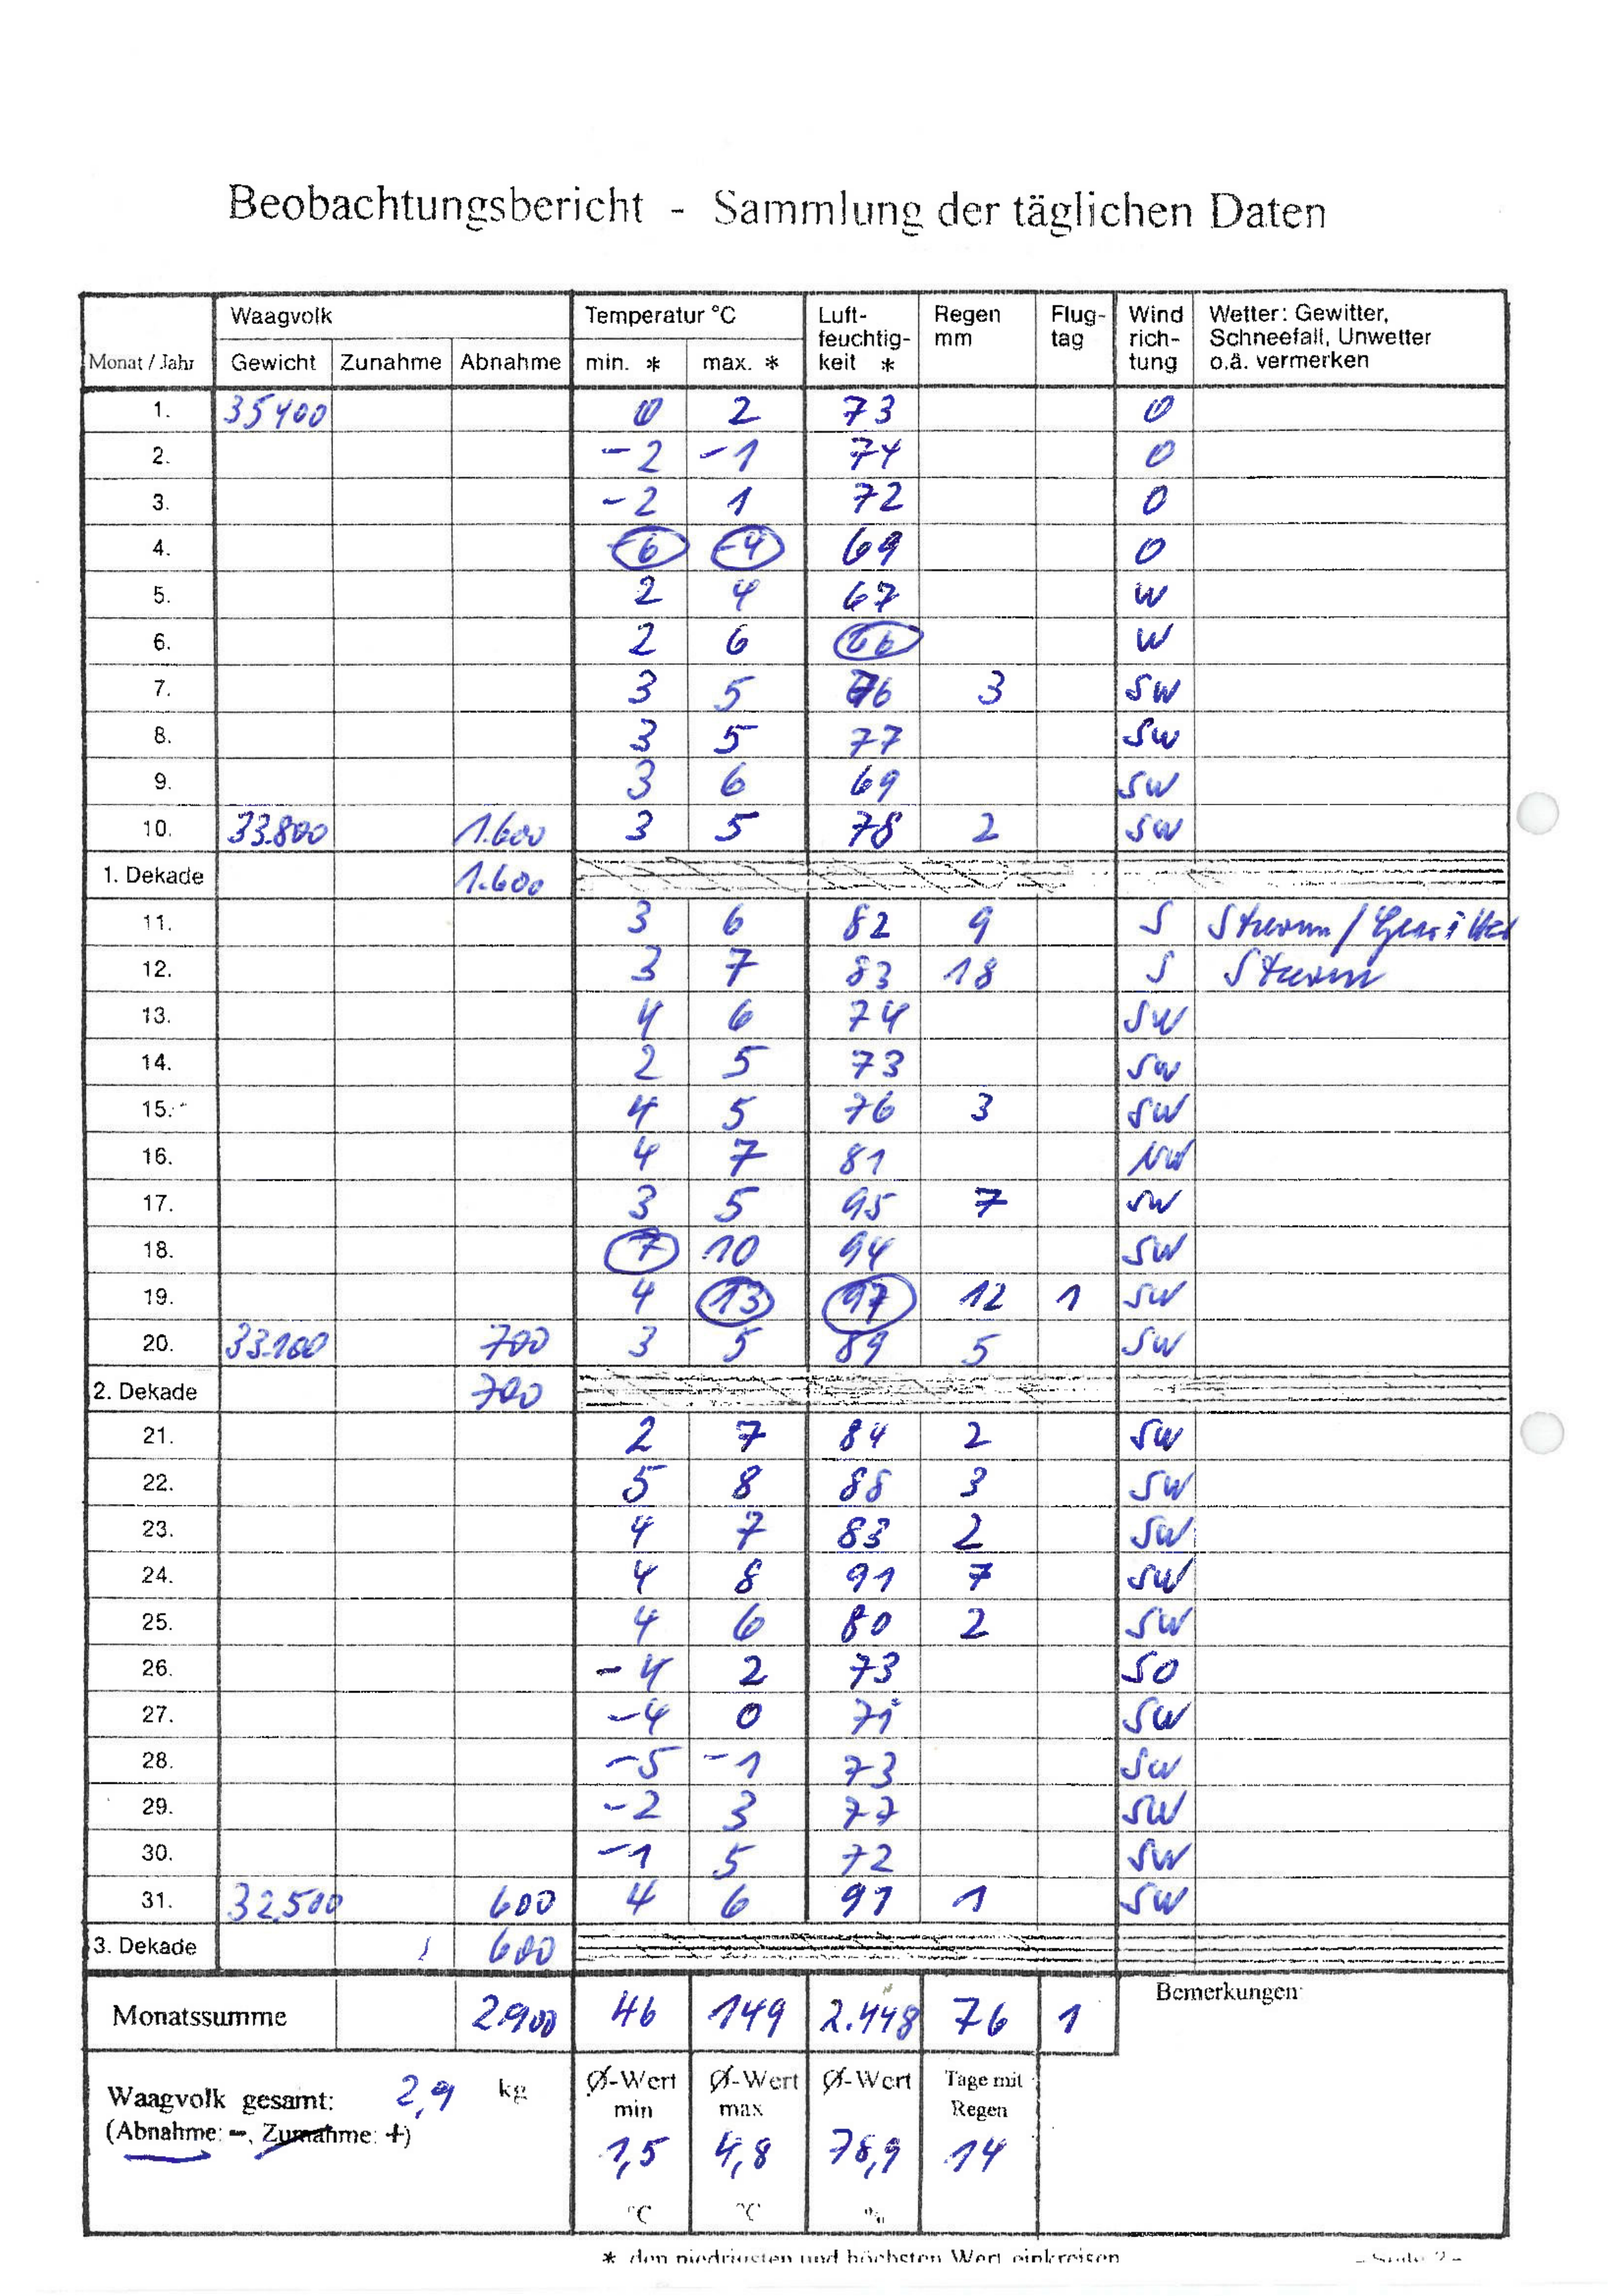 Beobachtungsbericht - Sammlung der täglichen Daten
Monat / Jahr Waagvolk Temperatur °C Luft-feuchtig-keit * Regen mm Flug-tag Wind rich-tung Wetter: Gewitter, Schneefall, Unwetter o.ä. vermerken
Gewicht Zunahme Abnahme min. * max. *
1. 35400 0 2 73 O
2. -2 -1 74 O
3. -2 1 72 O
4. -6 -4 69 O
5. 2 4 67 W
6. 2 6 66 W
7. 3 5 76 3 SW
8. 3 5 77 SW
9. 3 6 69 SW
10. 33.800 1.600 3 5 78 2 SW
1. Dekade 1.600
11. 3 6 82 9 S Sturm / Gewitter
12. 3 7 83 18 S Sturm
13. 4 6 74 SW
14. 2 5 73 SW
15. 4 5 76 3 SW
16. 4 7 81 NW
17. 3 5 95 7 SW
18. 7 10 94 SW
19. 4 13 97 12 1 SW
20. 33.100 700 3 5 89 5 SW
2. Dekade 700
21. 2 7 84 2 SW
22. 5 8 88 3 SW
23. 4 7 83 2 SW
24. 4 8 91 7 SW
25. 4 6 80 2 SW
26. -4 2 73 SO
27. -4 0 71 SW
28. -5 -1 73 SW
29. -2 3 77 SW
30. -1 5 72 SW
31. 32.500 600 4 6 91 1 SW
3. Dekade 600
Monatssumme 2900 46 149 2.448 76 1 Bemerkungen
Waagvolk gesamt: 2,9 kg
(Abnahme: -, Zunahme: +)
Ø-Wert min Ø-Wert max Ø-Wert Tage mit Regen
1,5 4,8 78,9 14
°C °C %
* den niedrigsten und höchsten Wert einkreisen - Seite 2 -